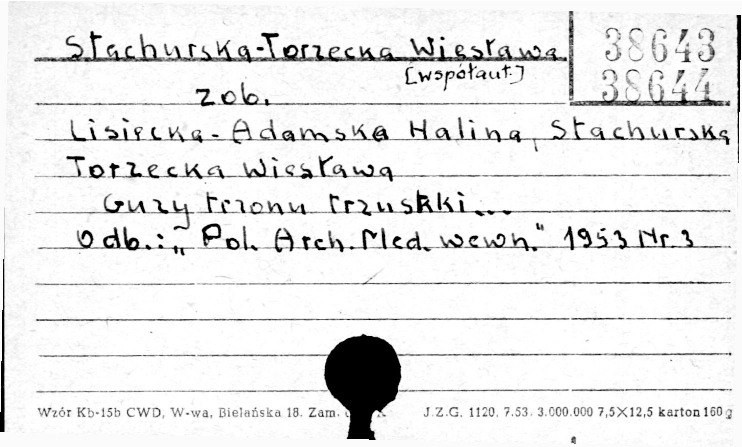 Stachurska-Torzecka Wiesława
[współaut.]
38643
38644
zob.
Lisiecka-Adamska Halina, Stachurska
Torzecka Wiesława
Guzy trzonu trzustki...
Odb.: „Pol. Arch. Med. wewn." 1953 Nr. 3
Wzór Kb-15b CWD, W-wa, Bielańska 18. Zam. J.Z.G. 1120. 7.53. 3.000.000 7,5×12,5 karton 160 g